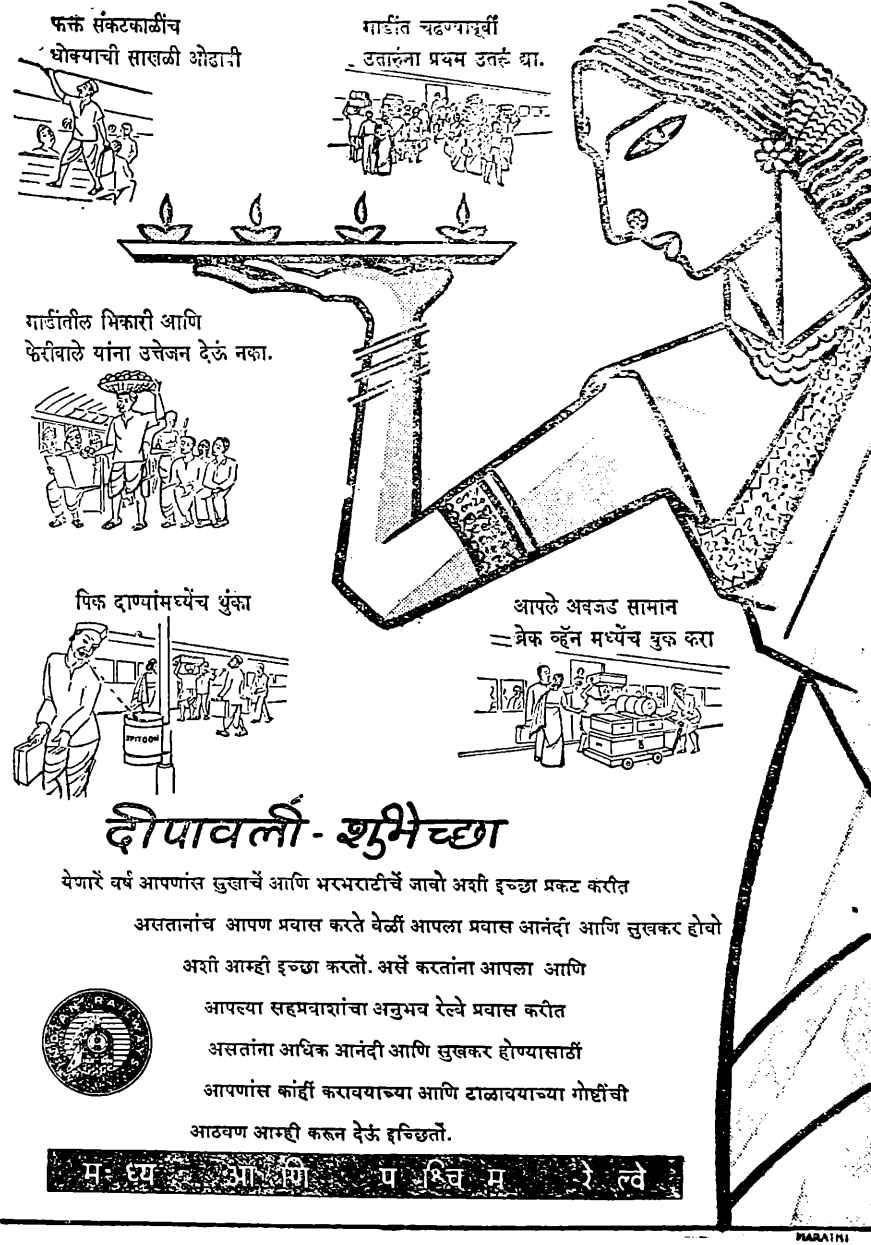 फक्त संकटकाळींच
धोक्याची साखळी ओढावी
गाडींत चढण्यापूर्वी
उतारुंना प्रथम उतरूं द्या.
गाडींतील भिकारी आणि
फेरीवाले यांना उत्तेजन देऊं नका.
पिक दाण्यांमध्येंच थुंका
SPITOON
आपले अवजड सामान
ब्रेक व्हॅन मध्येंच बुक करा
दीपावली - शुभेच्छा
येणारें वर्ष आपणांस सुखाचें आणि भरभराटीचें जावो अशी इच्छा प्रकट करीत
असतानांच आपण प्रवास करते वेळीं आपला प्रवास आनंदी आणि सुखकर होवो
अशी आम्ही इच्छा करतों. असें करतांना आपला आणि
आपल्या सहप्रवाशांचा अनुभव रेल्वे प्रवास करीत
असतांना अधिक आनंदी आणि सुखकर होण्यासाठीं
आपणांस कांहीं करावयाच्या आणि टाळावयाच्या गोष्टींची
आठवण आम्ही करून देऊं इच्छितों.
INDIAN RAILWAYS
मध्य आणि पश्चिम रेल्वे
MARATHI